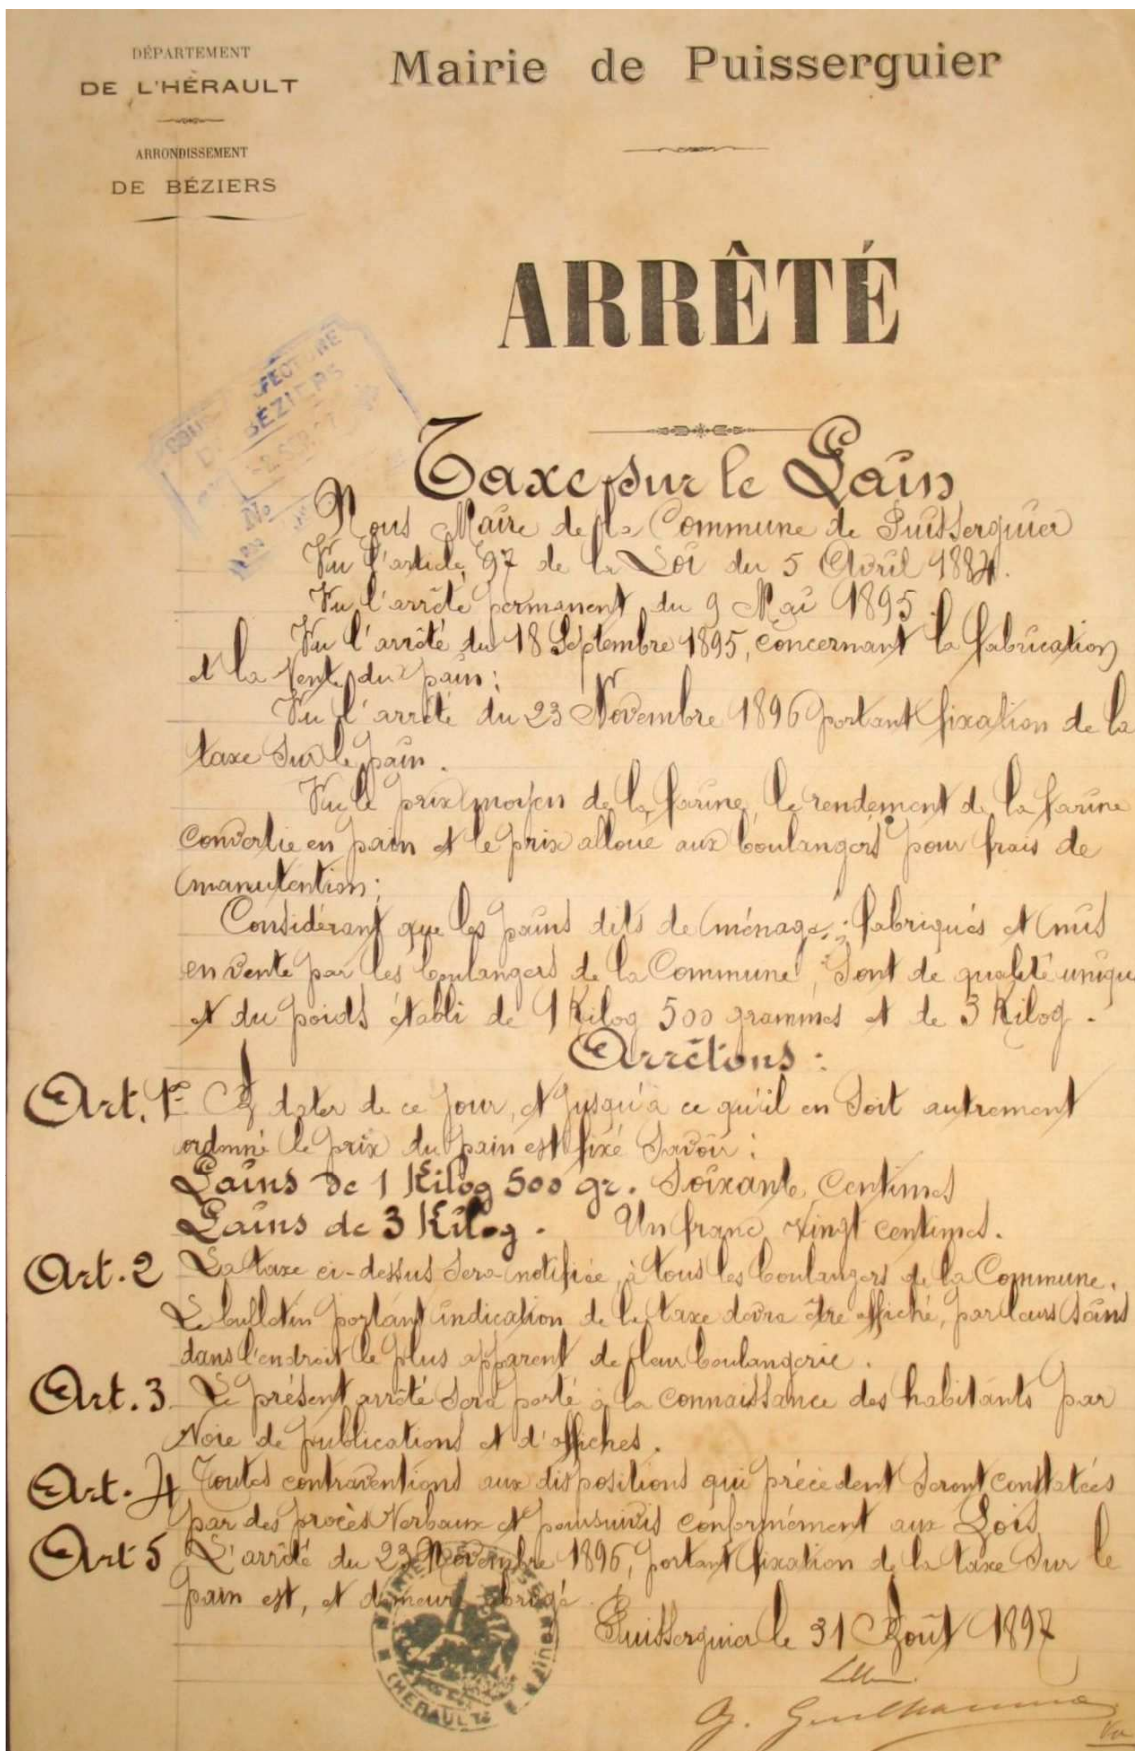 DÉPARTEMENT
DE L'HÉRAULT
ARRONDISSEMENT
DE BÉZIERS
Mairie de Puisserguier
ARRÊTÉ
Taxe sur le Pain
Nous Maire de la Commune de Puisserguier
Vu l'article 97 de la Loi du 5 Avril 1884.
Vu l'arrêté permanent du 9 Mai 1895.
Vu l'arrêté du 18 Septembre 1895, concernant la fabrication
et la vente du pain;
Vu l'arrêté du 23 Novembre 1896 portant fixation de la
taxe sur le pain.
Vu le prix moyen de la farine, le rendement de la farine
convertie en pain et le prix alloué aux boulangers pour frais de
manutention;
Considérant que les pains dits de ménage, fabriqués et mis
en vente par les boulangers de la Commune, sont de qualité unique
et du poids établi de 1 Kilog 500 grammes et de 3 Kilog.
Arrêtons:
Art. 1er A dater de ce jour, et jusqu'à ce qu'il en soit autrement
ordonné le prix du pain est fixé savoir:
Pains de 1 Kilog 500 gr. Soixante Centimes
Pains de 3 Kilog. Un franc vingt centimes.
Art. 2 La taxe ci-dessus sera notifiée à tous les boulangers de la Commune.
Le bulletin portant indication de la taxe devra être affiché, par leurs soins
dans l'endroit le plus apparent de leur boulangerie.
Art. 3 Le présent arrêté sera porté à la connaissance des habitants par
voie de publications et d'affiches.
Art. 4 Toutes contraventions aux dispositions qui précèdent seront constatées
par des procès Verbaux et poursuivis conformément aux Lois
Art 5 L'arrêté du 23 Novembre 1896, portant fixation de la taxe sur le
pain est, et demeure abrogé.
Puisserguier le 31 Août 1897
DE BÉZIERS
No
HÉRAULT